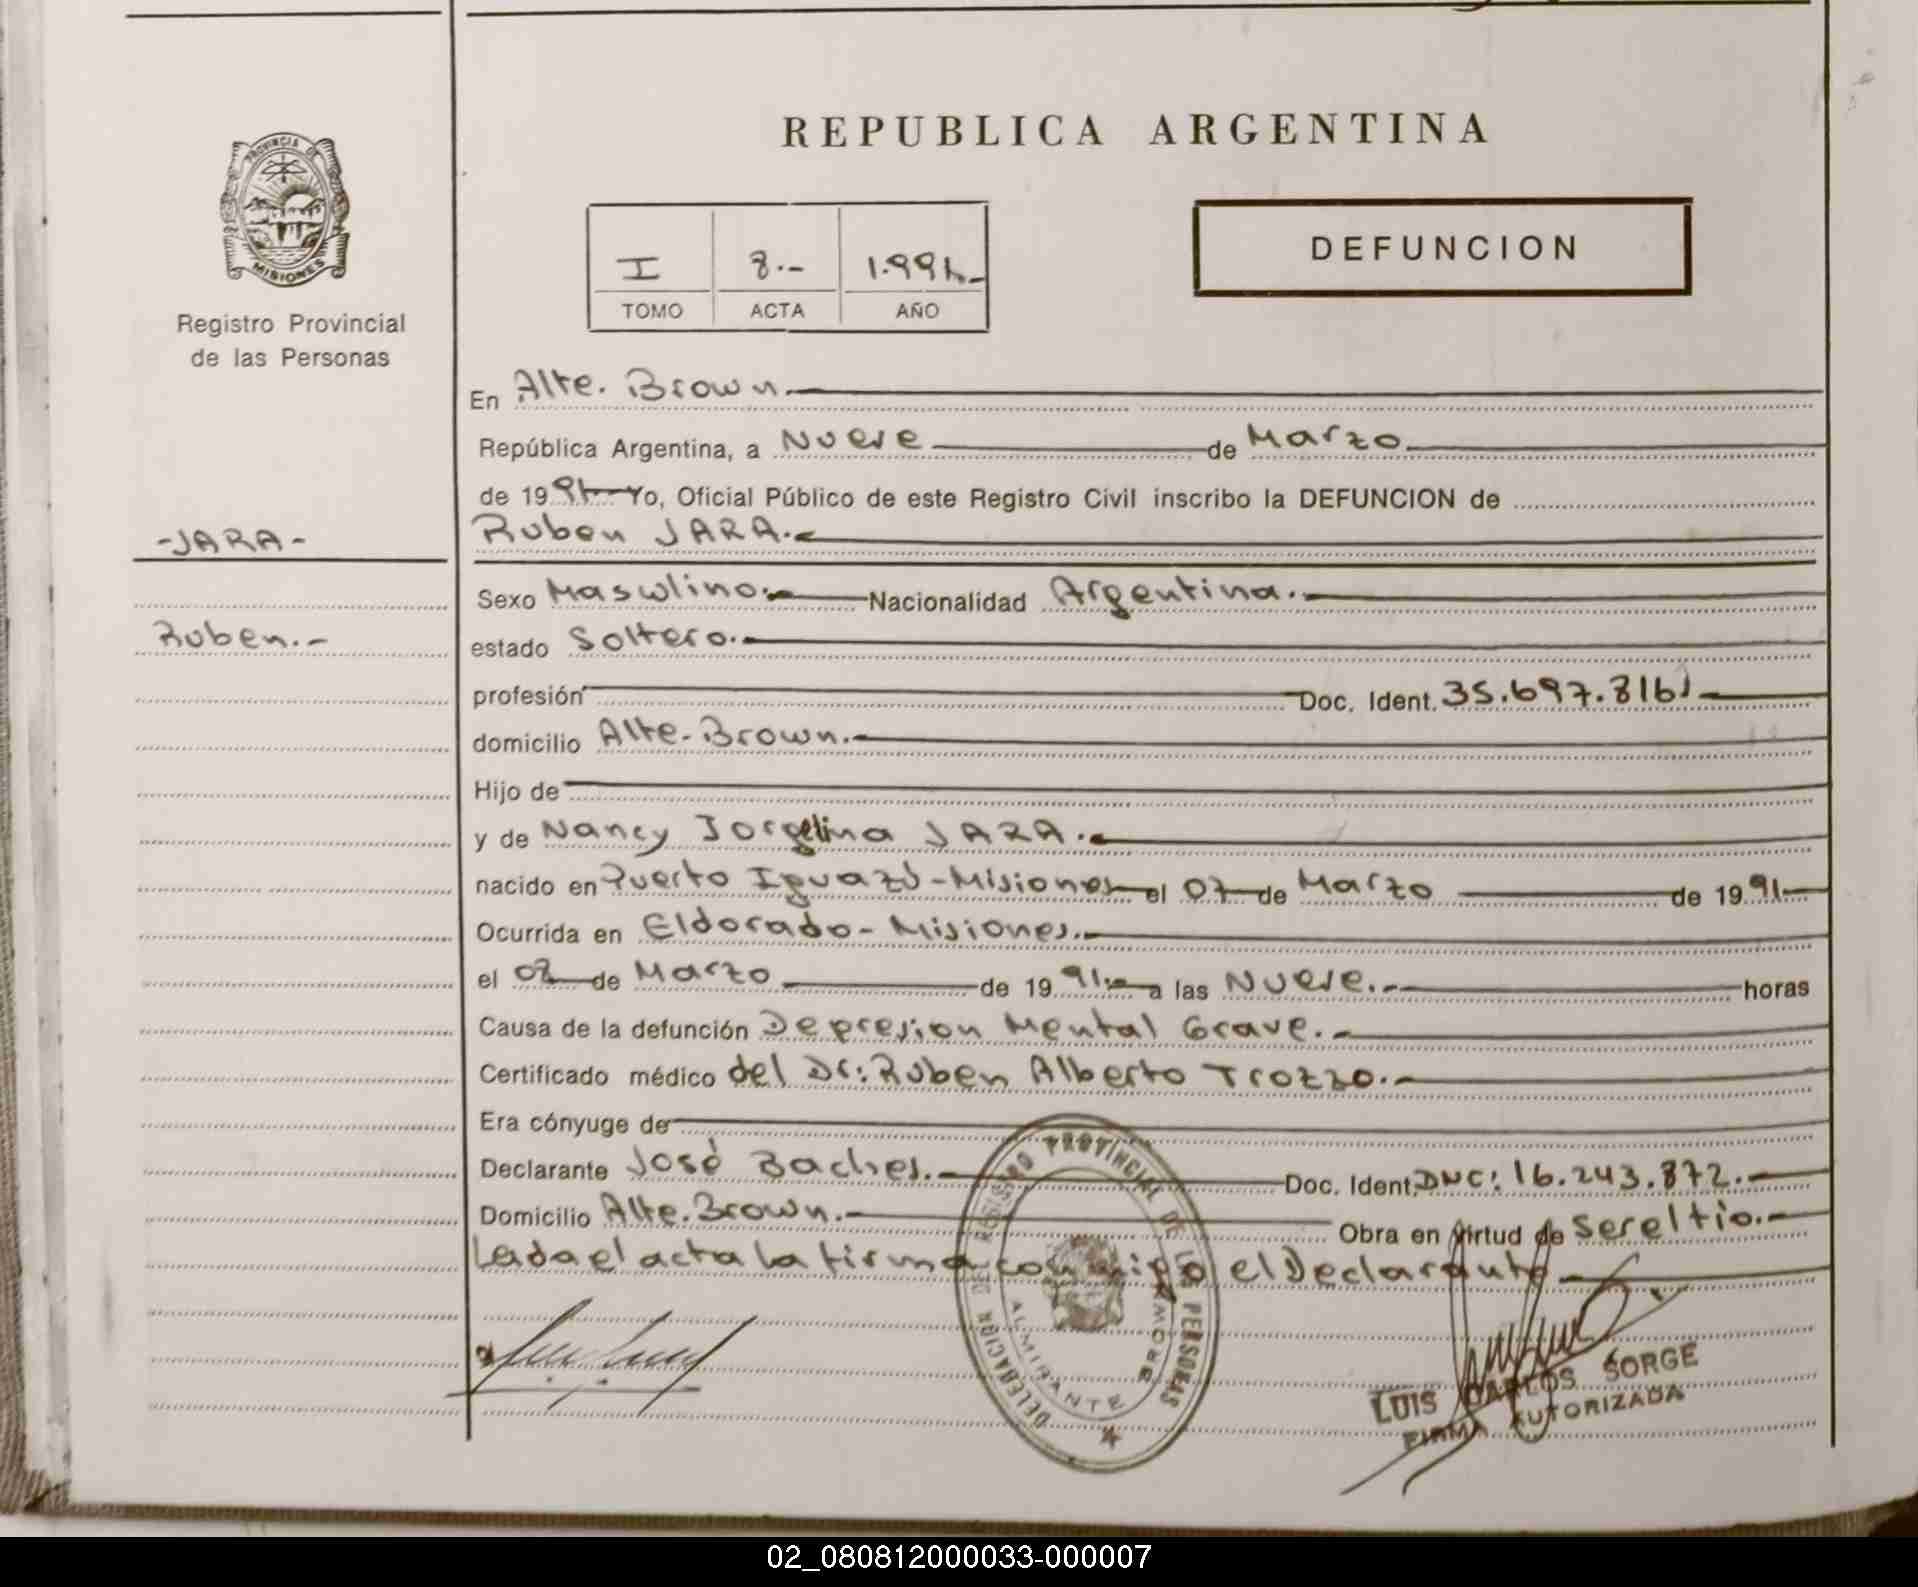 REPUBLICA ARGENTINA
PROVINCIA DE
MISIONES
Registro Provincial
de las Personas
I 8.- 1.991.-
TOMO ACTA AÑO
DEFUNCION
En Alte. Brown.
República Argentina, a Nueve de Marzo
de 1991 Yo, Oficial Público de este Registro Civil inscribo la DEFUNCION de
-JARA-
Ruben JARA.-
Sexo Masculino.- Nacionalidad Argentina.-
Ruben.-
estado Soltero.-
profesión Doc. Ident. 35.697.816
domicilio Alte. Brown.-
Hijo de
y de Nancy Jorgelina JARA.-
nacido en Puerto Iguazú-Misiones el 07 de Marzo de 1991
Ocurrida en Eldorado-Misiones.-
el 08 de Marzo de 1991.- a las Nueve.- horas
Causa de la defunción Depresion Mental Grave.-
Certificado médico del Dr: Ruben Alberto Trozzo.-
Era cónyuge de
Declarante José Baches.- Doc. Ident. DNC: 16.243.872.-
Domicilio Alte. Brown.- Obra en virtud de ser el tio.-
Leida el acta la firma conmigo el Declarante
DELEGACION DEL REGISTRO PROVINCIAL DE LAS PERSONAS
ALMIRANTE BROWN
LUIS CARLOS SORGE
FIRMA AUTORIZADA
02_080812000033-000007